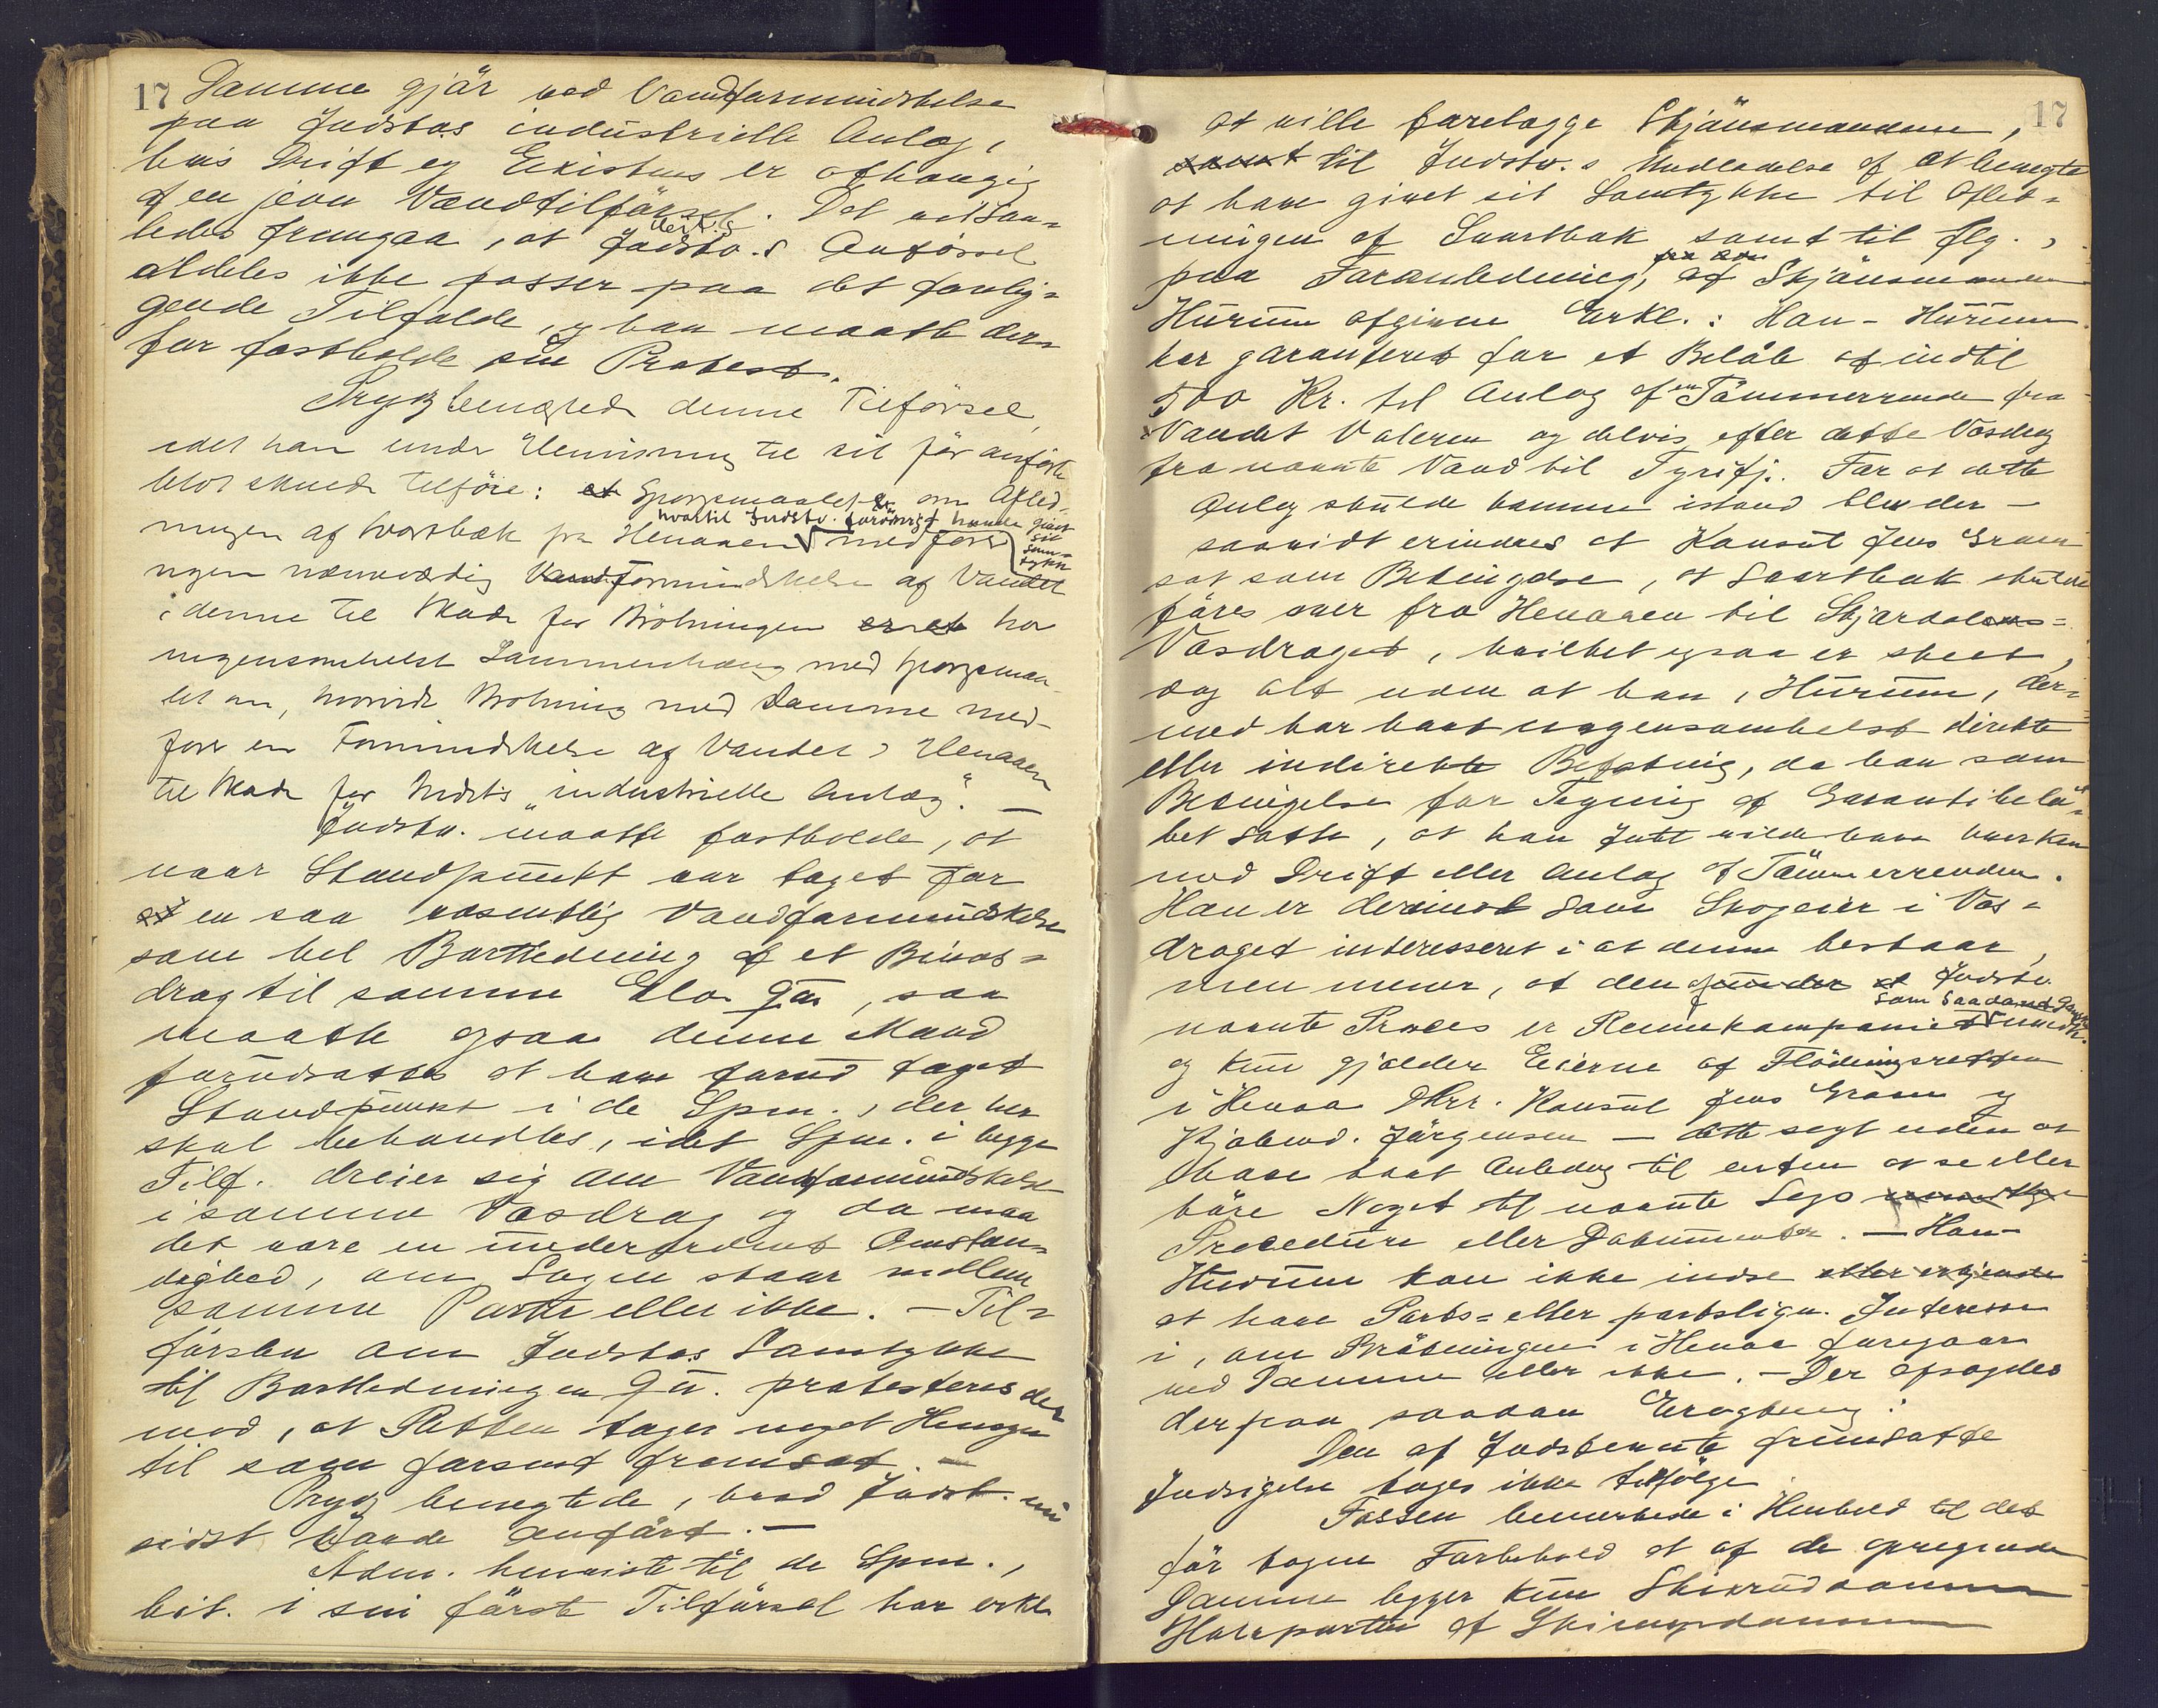 17 Damme gjør ved Vandformindskelse
paa Indstvs industrielle Anlæg,
hvis Drift og Existens er afhængig
af en jevn Vandtilførsel. Det vil saa-
ledes fremgaa, at Indstv.s Anførsel
aldeles ikke passer paa det forelig-
gende Tilfælde, og han maatte der-
for fastholde sin Protest.
Prydz benægtede denne Tilførsel,
idet han under Henvisning til sit før anførte
blot skulde tilføie: at Spørgsmaalet om Afled-
hvortil Indstv. forøvrigt havde givet sit Sam-tykke
ningen af Svartbæk fra Henaaen medfører
nogen nævneværdig Vandformindskelse af Vandet
i denne til Skade for Brötningen er et har
nogensomhelst Sammenhæng med Spørgsmaa-
let om, hvorvidt Brötning med Damme med-
fører en Formindskelse af Vandet i Henaaen
til Skade for Indstvs "industrielle Anlæg". —
Indstv. maatte fastholde, at
naar Standpunkt var taget for
at en saa væsentlig Vandformindskelse
som ved Bortledning af et Bivas-
drag til samme Elv qu., saa
maatte ogsaa denne Mand
forudsættes at have forud taget
Standpunkt i de Spm., der her
skal behandles, idet Spm. i begge
Tilf. dreier sig om Vandformindskelse
i samme Vasdrag og da maa
det være en underordnet Omstæn-
dighed, om Sagen staar mellem
samme Parter eller ikke. — Til-
førslen om Indstvs Samtykke
til Bortledningen qu. protesteres der
mod, at Retten tager noget Hensyn
til som forsent fremsat. —
Prydz benegtede, hvad Indst. nu
sidst havde anført. —
Adm. henviste til de Spm.,
hvt. i sin første Tilførsel har erkl.
17
at ville forelægge Skjønsmændene,
samt til Indstv.s Undladelse af at benegte
at have givet sit Samtykke til Afled-
ningen af Svartbæk samt til flg.,
paa Foranledning, af Skjønsmanden
Hurum afgivne Erkl.: Han - Hurum
har garanteret for et Beløb af indtil
500 Kr. til Anlæg af en Tømmerrende fra
Vandet Væleren og delvis efter dette Vasdrag
fra nævnte Vand til Tyrifj. For at dette
Anlæg skulde komme istand blev der —
saavidt erindres af Konsul Jens Gram
sat som Betingelse, at Svartbæk skulde
føres over fra Henaaen til Skjærdalens-
Vasdraget, hvilket ogsaa er skeet,
dog alt uden at han, Hurum, der-
med har havt nogensomhelst direkte
eller indirekte Befatning, da han som
Betingelse for Tegning af Garantibelø-
bet satte, at han Intet vilde have hverken
med Drift eller Anlæg af Tømmerrenden.
Han er derimod som Skogeier i Vas-
draget interesseret i at denne bestaar,
men mener, at den af Indstv.
som saadan
nævnte Proces er Rennekompaniet
og kun gjælder Eierne af Flödningsretten
i Henaa DHrr. Konsul Jens Gram og
Kjøbmd. Jørgensen — dette sagt uden at
have havt Anledng til enten at se eller
høre Noget til nævnte Sags
Procedure eller Dokumenter. — Han -
Hurum kan ikke indse eller erkjende
at have Parts- eller partslign. Interesse
i, om Brötningen i Henaa foregaar
ved Damme eller ikke. — Der afsagdes
derpaa saadan Eragtning:
Den af Indstævnte fremsatte
Indsigelse tages ikke tilfølge
Fossen bemerkede i Henhold til det
før tagne Forbehold at af de
Damme ligger kun